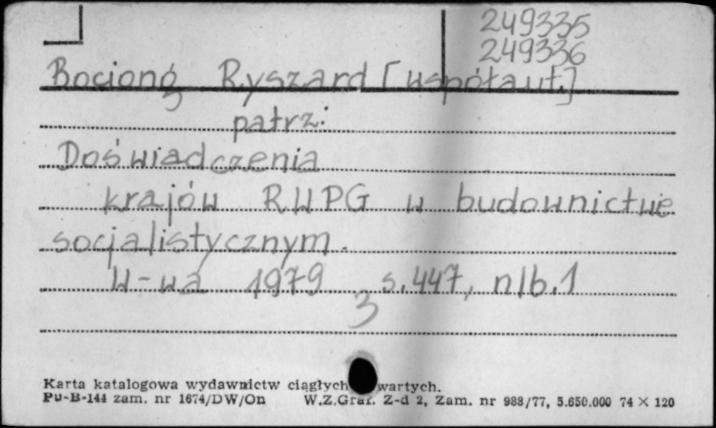 249335
249336
Bocioną Ryszard [współaut.]
patrz:
Doświadczenia
krajów RWPG w budownictwie
socjalistycznym.
W-wa 1979 s. 447, nlb. 1
3
Karta katalogowa wydawnictw ciągłych wartych.
PU-B-144 zam. nr 1674/DW/On W.Z.Graf. Z-d 2, Zam. nr 988/77, 5.650.000 74 × 120